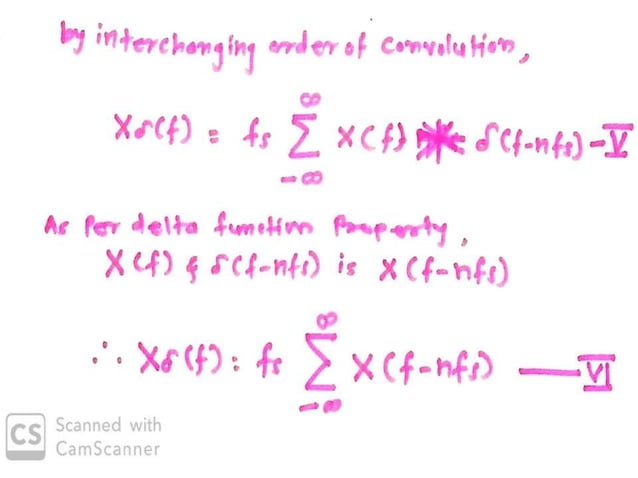 by interchanging order of convolution,
Xδ(f) = fs ∑ X(f) * δ(f-nfs) - V
∞
-∞
As Per delta function Property,
X(f) & δ(f-nfs) is X(f-nfs)
∴ Xδ(f) : fs ∑ X(f-nfs) — VI
∞
-∞
CS Scanned with
CamScanner